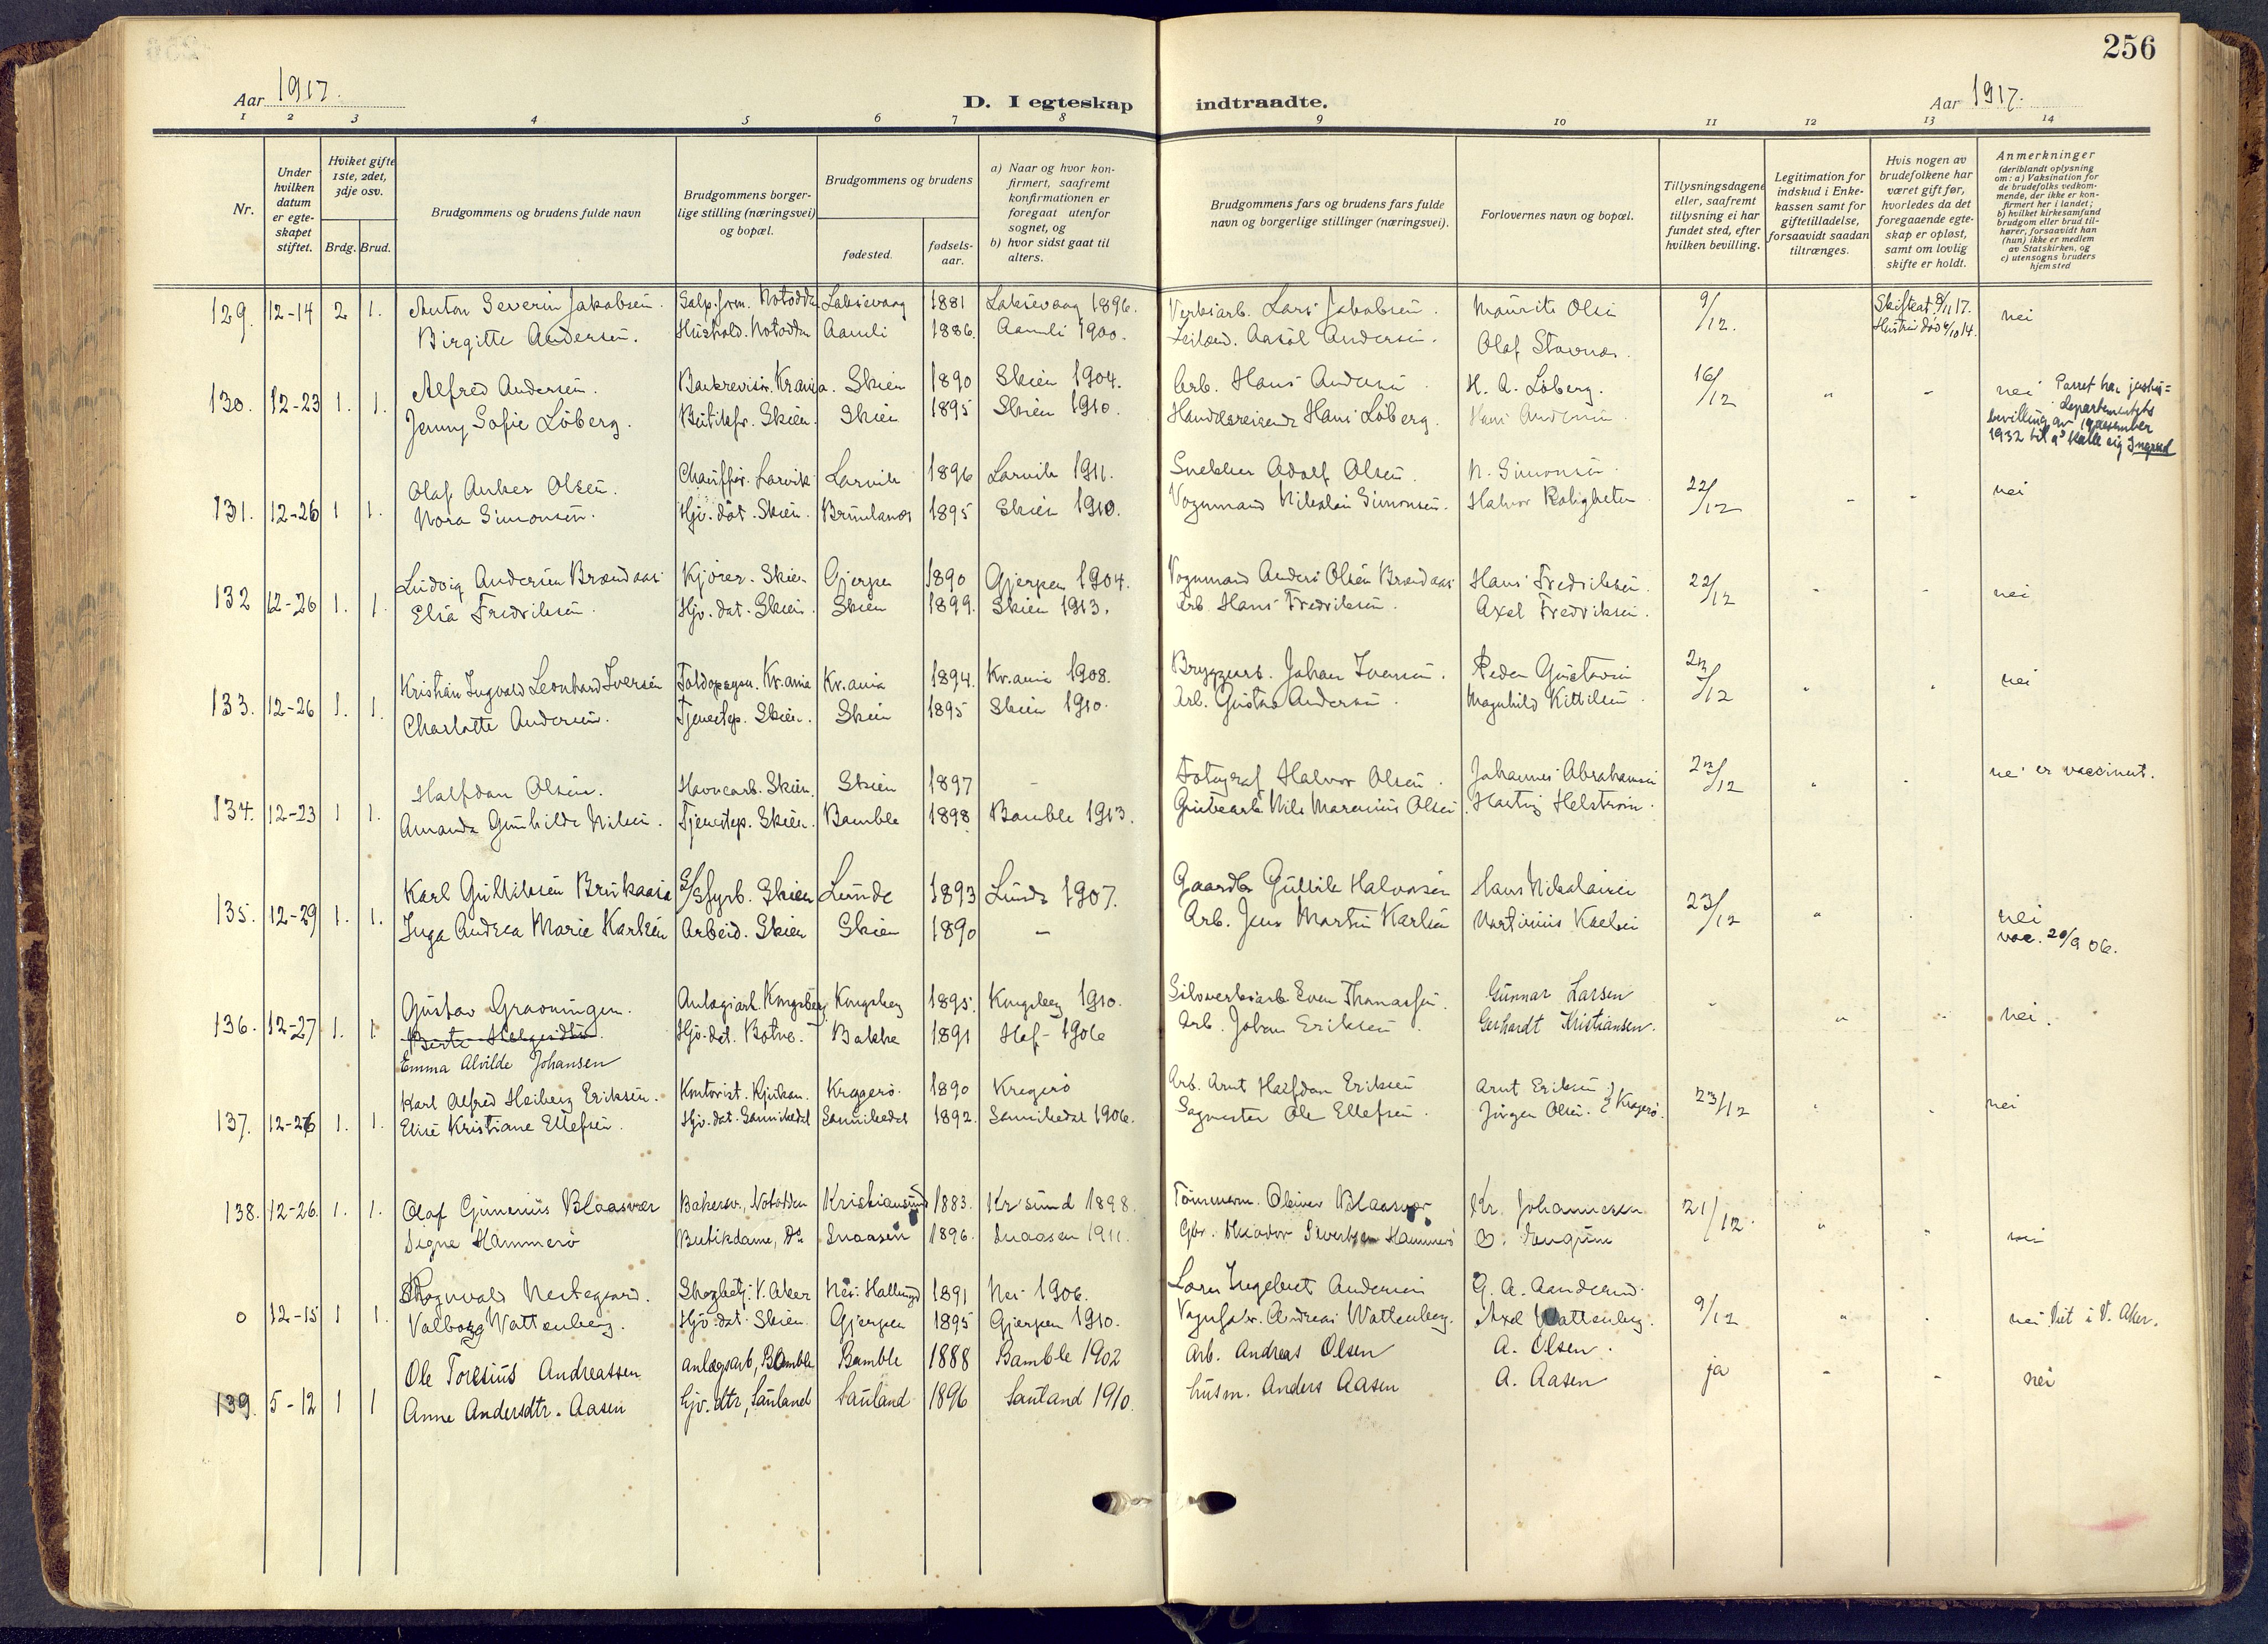 256
Aar 1917.
D. I egteskap indtraadte.
Aar 1917.
1 2 3 4 5 6 7 8 9 10 11 12 13 14
Nr.
Under hvilken datum er egte-skapet stiftet.
Hviket gifte 1ste, 2det, 3dje osv.
Brdg. Brud.
Brudgommens og brudens fulde navn
Brudgommens borger-lige stilling (næringsvei) og bopæl.
Brudgommens og brudens
fødested. fødsels-aar.
a) Naar og hvor kon-firmert, saafremt konfirmationen er foregaat utenfor sognet, og
b) hvor sidst gaat til alters.
Brudgommens fars og brudens fars fulde navn og borgerlige stillinger (næringsvei).
Forlovernes navn og bopæl.
Tillysningsdagene eller, saafremt tillysning ei har fundet sted, efter hvilken bevilling.
Legitimation for indskud i Enke-kassen samt for giftetilladelse, forsaavidt saadan tiltrænges.
Hvis nogen av brudefolkene har været gift før, hvorledes da det foregaaende egte-skap er opløst, samt om lovlig skifte er holdt.
Anmerkninger
(deriblandt oplysning om: a) Vaksination for de brudefolks vedkom-mende, der ikke er kon-firmert her i landet;
b) hvilket kirkesamfund brudgom eller brud til-hører, forsaavidt han (hun) ikke er medlem av Statskirken, og
c) utensogns bruders hjemsted
129. 12-14 2 1. Anton Severin Jakobsen. Notodden Laksevaag 1881 Laksevaag 1896. Verksarb. Lars Jakobsen. Maurits Olsen 9/12. Skifteat. 8/11 17. nei
Birgitte Andersen. Hushold. Notodden Aamli 1886. Aamli 1900. Leilænd. Aasöl Andersen. Olaf Stavnes. Hustru död 4/10 14.
130. 12-23 1. 1. Alfred Andersen. Bankrevisor. Krania. Skien 1890 Skien 1904. Arb. Hans Andersen H. A. Löberg. 16/12 " - nei Parret har justis=
Jenny Sofie Löberg. Skien. Skien 1895 Skien 1910. Handelsreisende Hans Löberg. Hans Andersen. departementets
bevilling av 19 desember
1932 til å kalle sig
131. 12-26 1 1. Olaf Anker Olsen. Chauffør. Larvik. Larvik 1896 Larvik 1911. Snekker Adolf Olsen. N. Simonsen. 22/12 - - nei
Nora Simonsen. Hjv. dat. Skien. Brunlanes 1895 Skien 1910. Vognmand Nikolai Simonsen. Halvor Roligheten
132 12-26 1. 1. Ludvig Andersen Brændaas Kjører. Skien Gjerpen 1890 Gjerpen 1904. Vognmand Anders Olsen Brændaas Hans Fredriksen. 22/12 - - nei
Elsa Fredriksen. Hjv. dat. Skien. Skien 1899. Skien 1913. Arb. Hans Fredriksen. Axel Fredriksen.
133. 12-26 1. 1. Kristian Ingvald Leonhard Iversen Kr.ania Kr.ania 1894. Kr.ania 1908. Bryggearb. Johan Iversen. Peder Gustavsen 23/12 " " nei
Charlotte Andersen. Tjenestep. Skien. Skien 1895 Skien 1910. Arb. Gustav Andersen. Magnhild Kittilsen.
134. 12-23 1 1. Halfdan Olsen. Havnearb. Skien. Skien 1897 - Fotograf Halvor Olsen. Johannes Abrahamsen 23/12 " " nei er vaccinert.
Amanda Gunhilde Nilsen. Tjenestep. Skien. Bamble 1898 Bamble 1913. Grubearb. Nils Marenius Olsen. Hartvig Helstrøm.
135. 12-29 1. 1. Karl Gullikesen Brukaasa S/S fyrb. Skien Lunde 1893 Lunde 1907. Gaardbr Gullik Halvorsen Hans Nikolaisen 23/12 " . nei
Inga Andrea Marie Karlsen Arbeid. Skien Skien 1890 - Arb. Jens Martin Karlsen Martinius Karlsen vac. 20/9 06.
136. 12-27 1. 1. Gustav Graoningen. Anlægsarb. Kongsberg Kongsberg 1895. Kongsberg 1910. Sölvverksarb. Even Thomassen. Gunnar Larsen " " " nei.
Berte Helgesdtr. Hjv. dat. Botne. Bakke 1891 Hof - 1906 Arb. Johan Eriksen. Gerhardt Kristiansen.
Emma Alvilde Johansen
137. 12-26 1. 1. Karl Alfred Heiberg Eriksen. Kontorist. Rjukan. Kragerö. 1890 Kragerö Arb. Arnt Halfdan Eriksen Arnt Eriksen } Kragerö. 23/12 " . nei
Elise Kristiane Ellefsen. Hjv. dat. Sannikedal Sannikedal 1892. Sannikedal 1906. Sagmester Ole Ellefsen. Jörgen Olsen.
138. 12-26. 1. 1. Olaf Gunerius Blaasvær Bakersv., Notodden Kristiansund 1883. Kr sund 1898. Tömmerm. Oliver Blaasvær Kr. Johannesen 21/12. " " nei
Signe Hammerö Butikdame, Do Snaasen 1896. Snaasen 1911. Gbr. Sivertsen Hammerö
0 12-15 1 1. Ragnvald Nestegaard. V. Aker Nes. Hallingd 1891 Nes 1906. Lars Ingebret Andersen G. A. Aanderud. 9/12 " " nei Viet i V. Aker.
Valborg Wattenberg. Hjv. dat. Skien. Gjerpen 1895 Gjerpen 1910. Andreas Wattenberg. Axel Wattenberg.
139. 5-12 1 1 Ole Toresius Andreassen anlægsarb, Bamble Bamble 1888 Bamble 1902 Arb. Andreas Olsen A. Olsen. ja - - nei
Anne Andersdtr. Aasen Gjv. dtr, Sauland Sauland 1896 Sauland 1910. husm. Anders Aasen A. Aasen